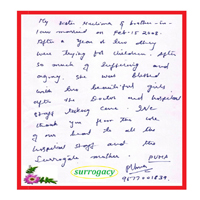 My Sister Married & brother-in-
law married on Feb-15 2008.
After a year or two they
were trying for children. After
so much of suffering and
agony. She was blessed
with two beautiful girls.
after the Doctor and hospital
staffs taking care. I/We
thank you from the core
of our heart to all the
hospital staff and the
Surrogate mother.
PUMA
9577001839.
surrogacy